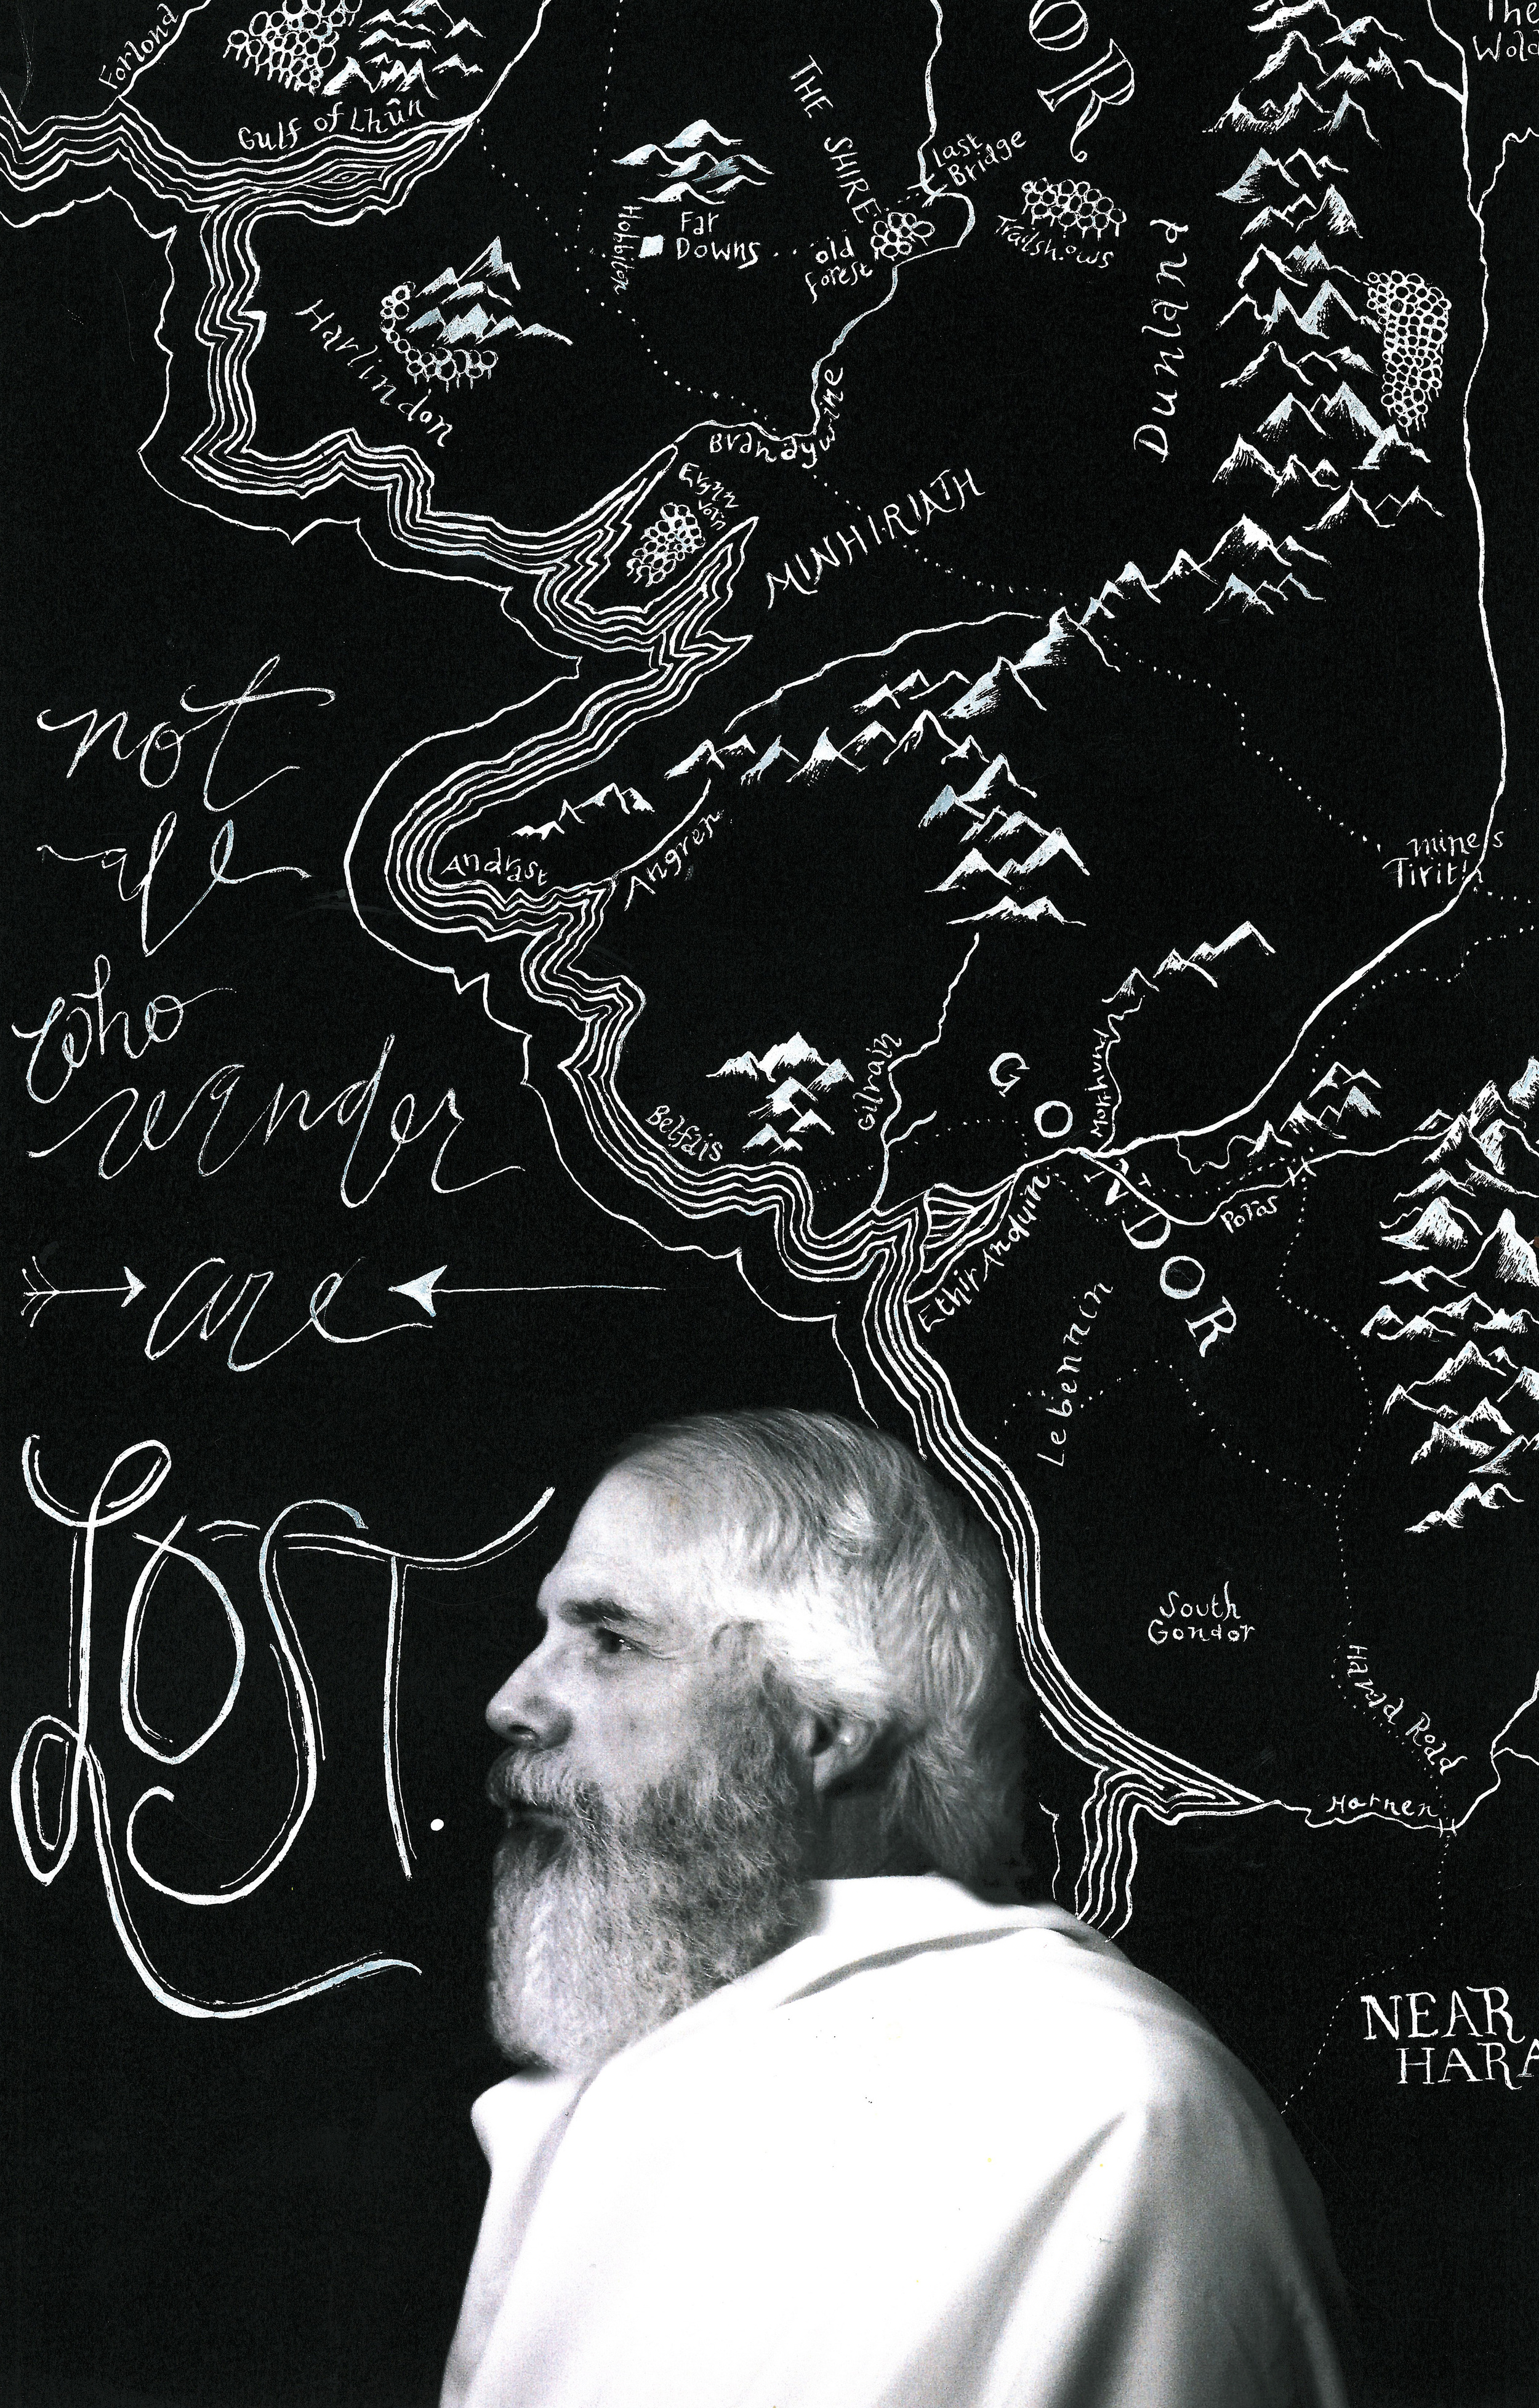 Forlond
Gulf of Lhûn
THE SHIRE
Last
Bridge
OR
The
Hobbiton
Far
Downs
old
forest
Trollshaws
Harlindon
Dunland
Brandywine
Eryn
Vorn
MINHIRIATH
not
all
who
wander
are
LOST.
Andrast
Angren
Tirith
Belfais
Gilrain
Morthund
GONDOR
Poros
Ethir Anduin
Lebennin
South
Gondor
Harad Road
Harnen
NEAR
HARA